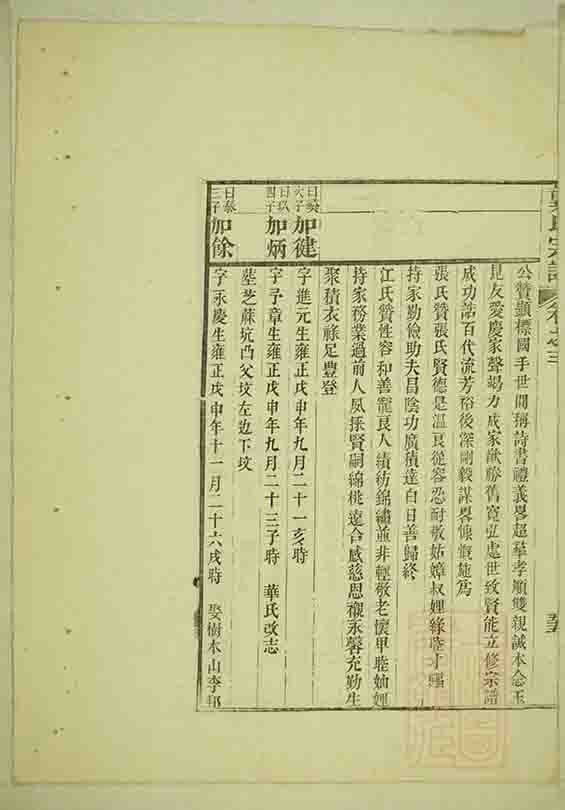 氏宗譜 卷之三
公贊顯標國手世間稱詩書禮義畧超羣孝順雙親誠本念玉
昆友愛慶家聲竭力成家猷勝舊寬弘處世致賢能立修宗譜
成功誥百代流芳裕後深剛毅謀畧慷慨施爲
張氏贊張氏賢德是溫良從容忍耐敬姑嫜叔娌緣睦才
持家勤儉助夫昌陰功廣積達白日善歸終
江氏贊性容和善寵良人績紡錦繡並非輕敬老懷甲睦妯娌
持家務業過前人夙採賢嗣綿桃遠合感慈恩襯永馨充勤生
聚積衣祿足豐登
曰 六子 加健 字進元生雍正戊申年九月二十一亥時
曰玖 四子 加炳 字予章生雍正戊申年九月二十三子時 華氏改志
塟芝蔴坑凸父墳左边下墳
曰泰 三子 加餘 字永慶生雍正戊申年十一月二十六戌時 娶樹木山李